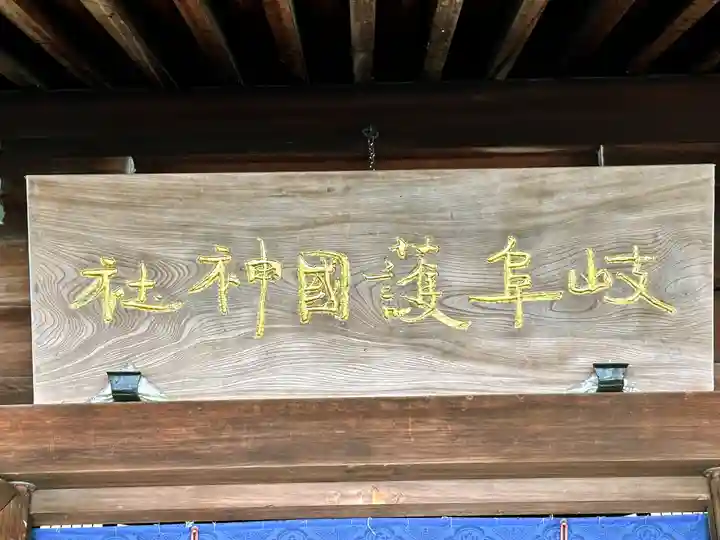 岐阜護國神社